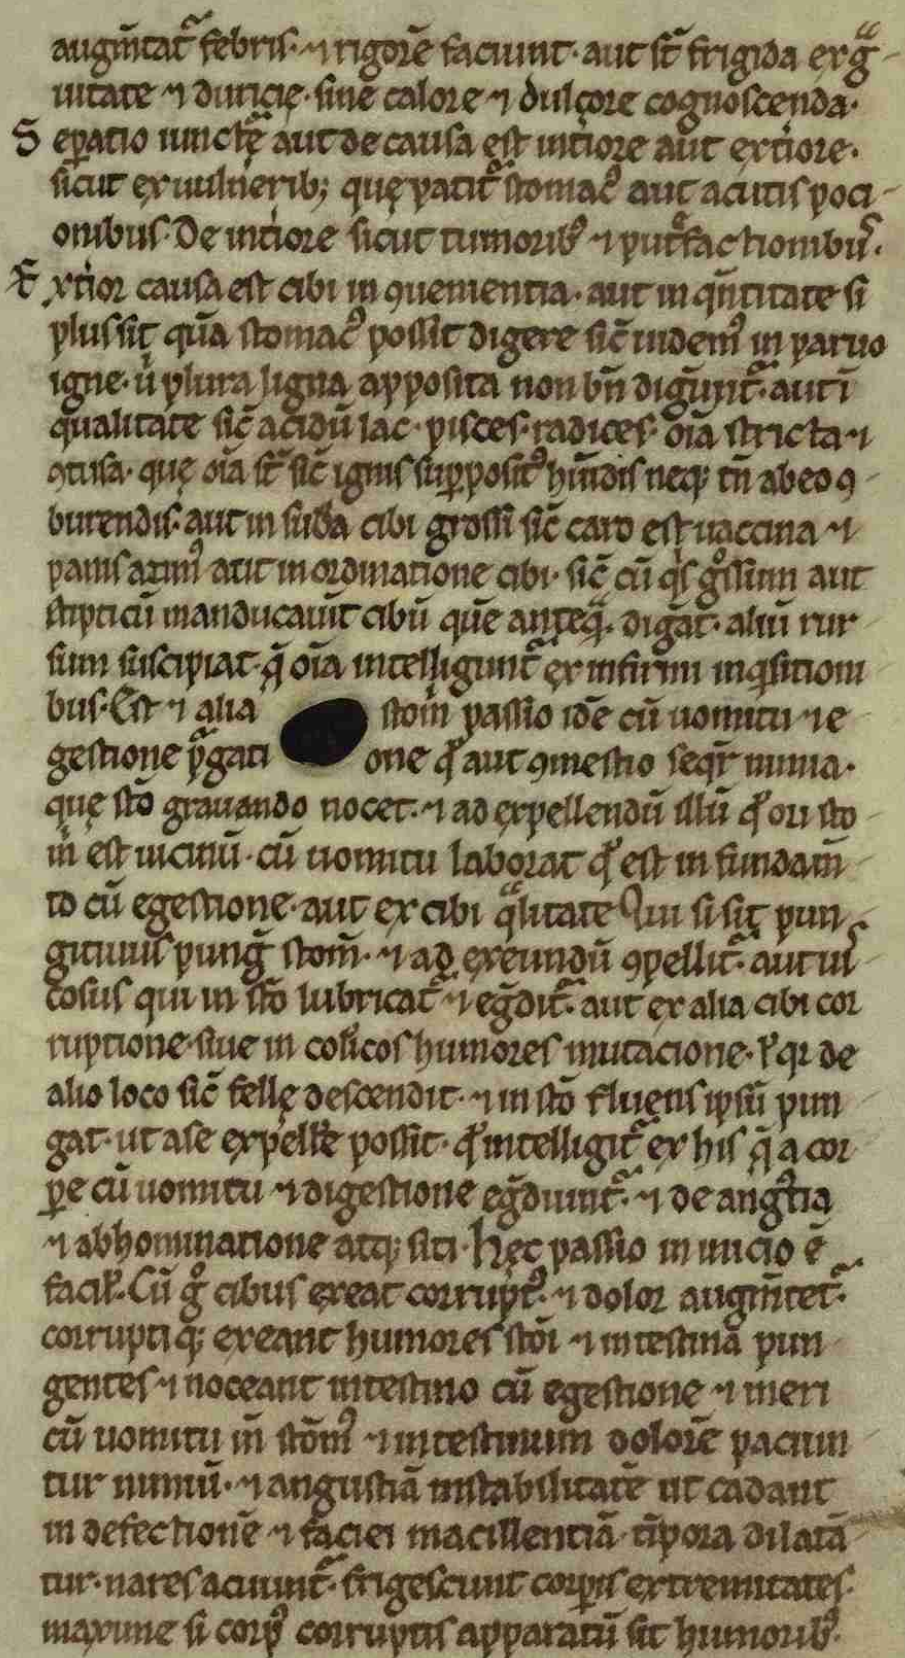 augm̄tat᷑ febris· ⁊ rigorē faciunt· aut st̄ frigida ex gͣ
uitate ⁊ duricię· sine calore ⁊ dulcore cognoscenda·
Seꝑatio iunctę aut de causa est int̓iore aut ext̓iore·
sicut ex uulnerib; quę patit᷑ stomac᷒ aut acutis poci
onibus· De int̓iore sicut tumorib᷒ ⁊ put᷑factionibus·
Ext̓ior causa est cibi in ꝯuenientia· aut in q̄ntitate si
plus sit quā stomac᷒ possit digere sic̄ uidem᷒ in paruo
igne· u̇ plura ligna apposita non bn̄ digunt᷑· aut ī
qualitate sic̄ acidū lac· pisces· radices· oīa stricta ⁊
ꝯtusa· quę oīa st̄ sic̄ ignis suꝑposit᷒ hūidis neq; tn̄ ab eo ꝯ
burendis· aut in sub̄a cibi grossi sic̄ caro est uaccina ⁊
panis azim᷒ aut in ordinatione cibi· sic̄ cū qͥs gͦssum aut
stipticū manducau̇it cibū quē anteqͣ̄· digāt· aliū rur
sum suscipiat· q̄ oīa intelligunt᷑ ex infirmi inqͥsitioni
bus· Est ⁊ alia stom̄ passio idē cū uomitu ⁊ e
gestione p̲gati one qͦ aut ꝯmestio seqr̄ nimia·
quę sto᷒ grauando nocet· ⁊ ad expellendū illū qͦ ori sto
m̄ est uicinū· cū uomitu laborat qͦ est in fundam̄
to cū egestione· aut ex cibi qͣlitate Qui si sit pun
gitiuus pung̃ stom̄· ⁊ ad exeundū ꝯpellit᷑· aut uis
cosus qui in sto᷒ lubricat᷑ ⁊ eg̃dit᷑· aut ex alia cibi cor
ruptione siue in col̓icos humores mutacione· ł qr de
alio loco sic̄ felle descendit· ⁊ in sto᷒ fluens ipsū pun
gat· ut a se expell̓e possit· qͦ intelligit᷑ ex his q̄ a cor
ꝑe cū uomitu ⁊ digestione eg̃diunt᷑· ⁊ de ang᷒tia
⁊ abhominatione atq; siti· Hęc passio in uicio ē
facił· Cū gͦ cibus exeat corrupt᷒· ⁊ dolor augm̄tet᷑·
corruptiq; exeant humores stōi ⁊ intestina pun
gentes ⁊ noceant intestino cū egestione ⁊ meri
cū uomitu in̄ stōm᷒ ⁊ intestinum dolorē paciun
tur nimiū· ⁊ angustiā instabilitatē ut cadant
in defectionē ⁊ faciei macillentiā· tīpora dilatā
tur· nares acuunt᷑· frigescunt corꝑis extremitates·
maxime si corp᷒ corruptis apparatū sit humorib᷒·